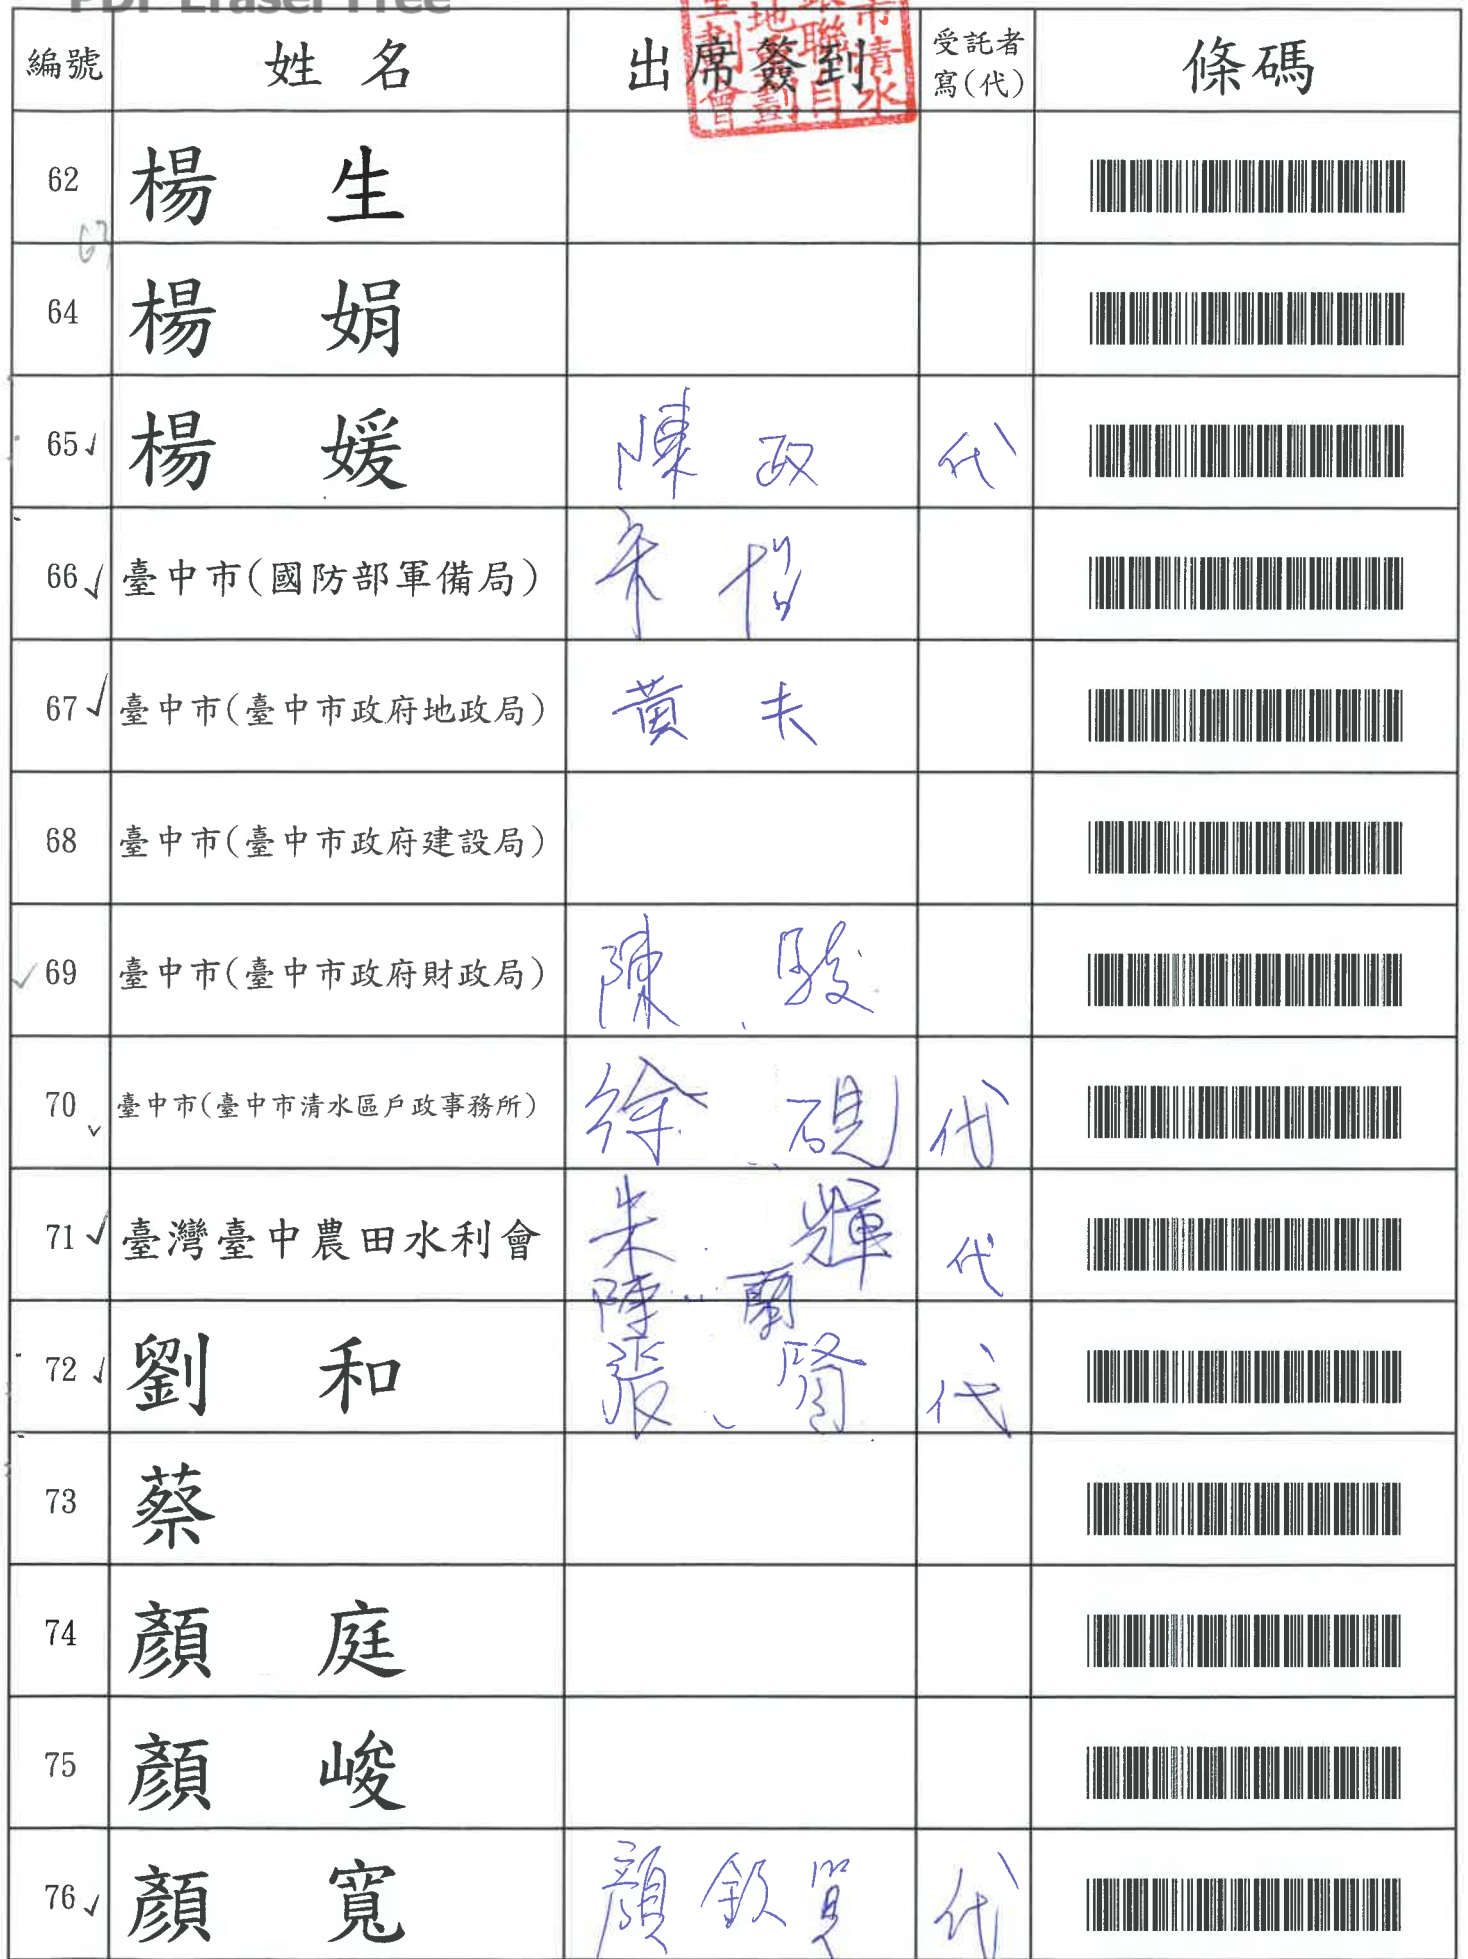 PDF Eraser Free
編號 姓名 出席簽到 受託者寫(代) 條碼
62 楊 生
63
64 楊 娟
65 楊 媛 陳 政 代
66 臺中市(國防部軍備局)
67 臺中市(臺中市政府地政局) 黃 夫
68 臺中市(臺中市政府建設局)
69 臺中市(臺中市政府財政局) 陳 駿
70 臺中市(臺中市清水區戶政事務所) 徐 硯 代
71 臺灣臺中農田水利會 朱 輝 代
陳 蘭
72 劉 和 張 賢 代
73 蔡
74 顏 庭
75 顏 峻
76 顏 寬 顏 欽 代